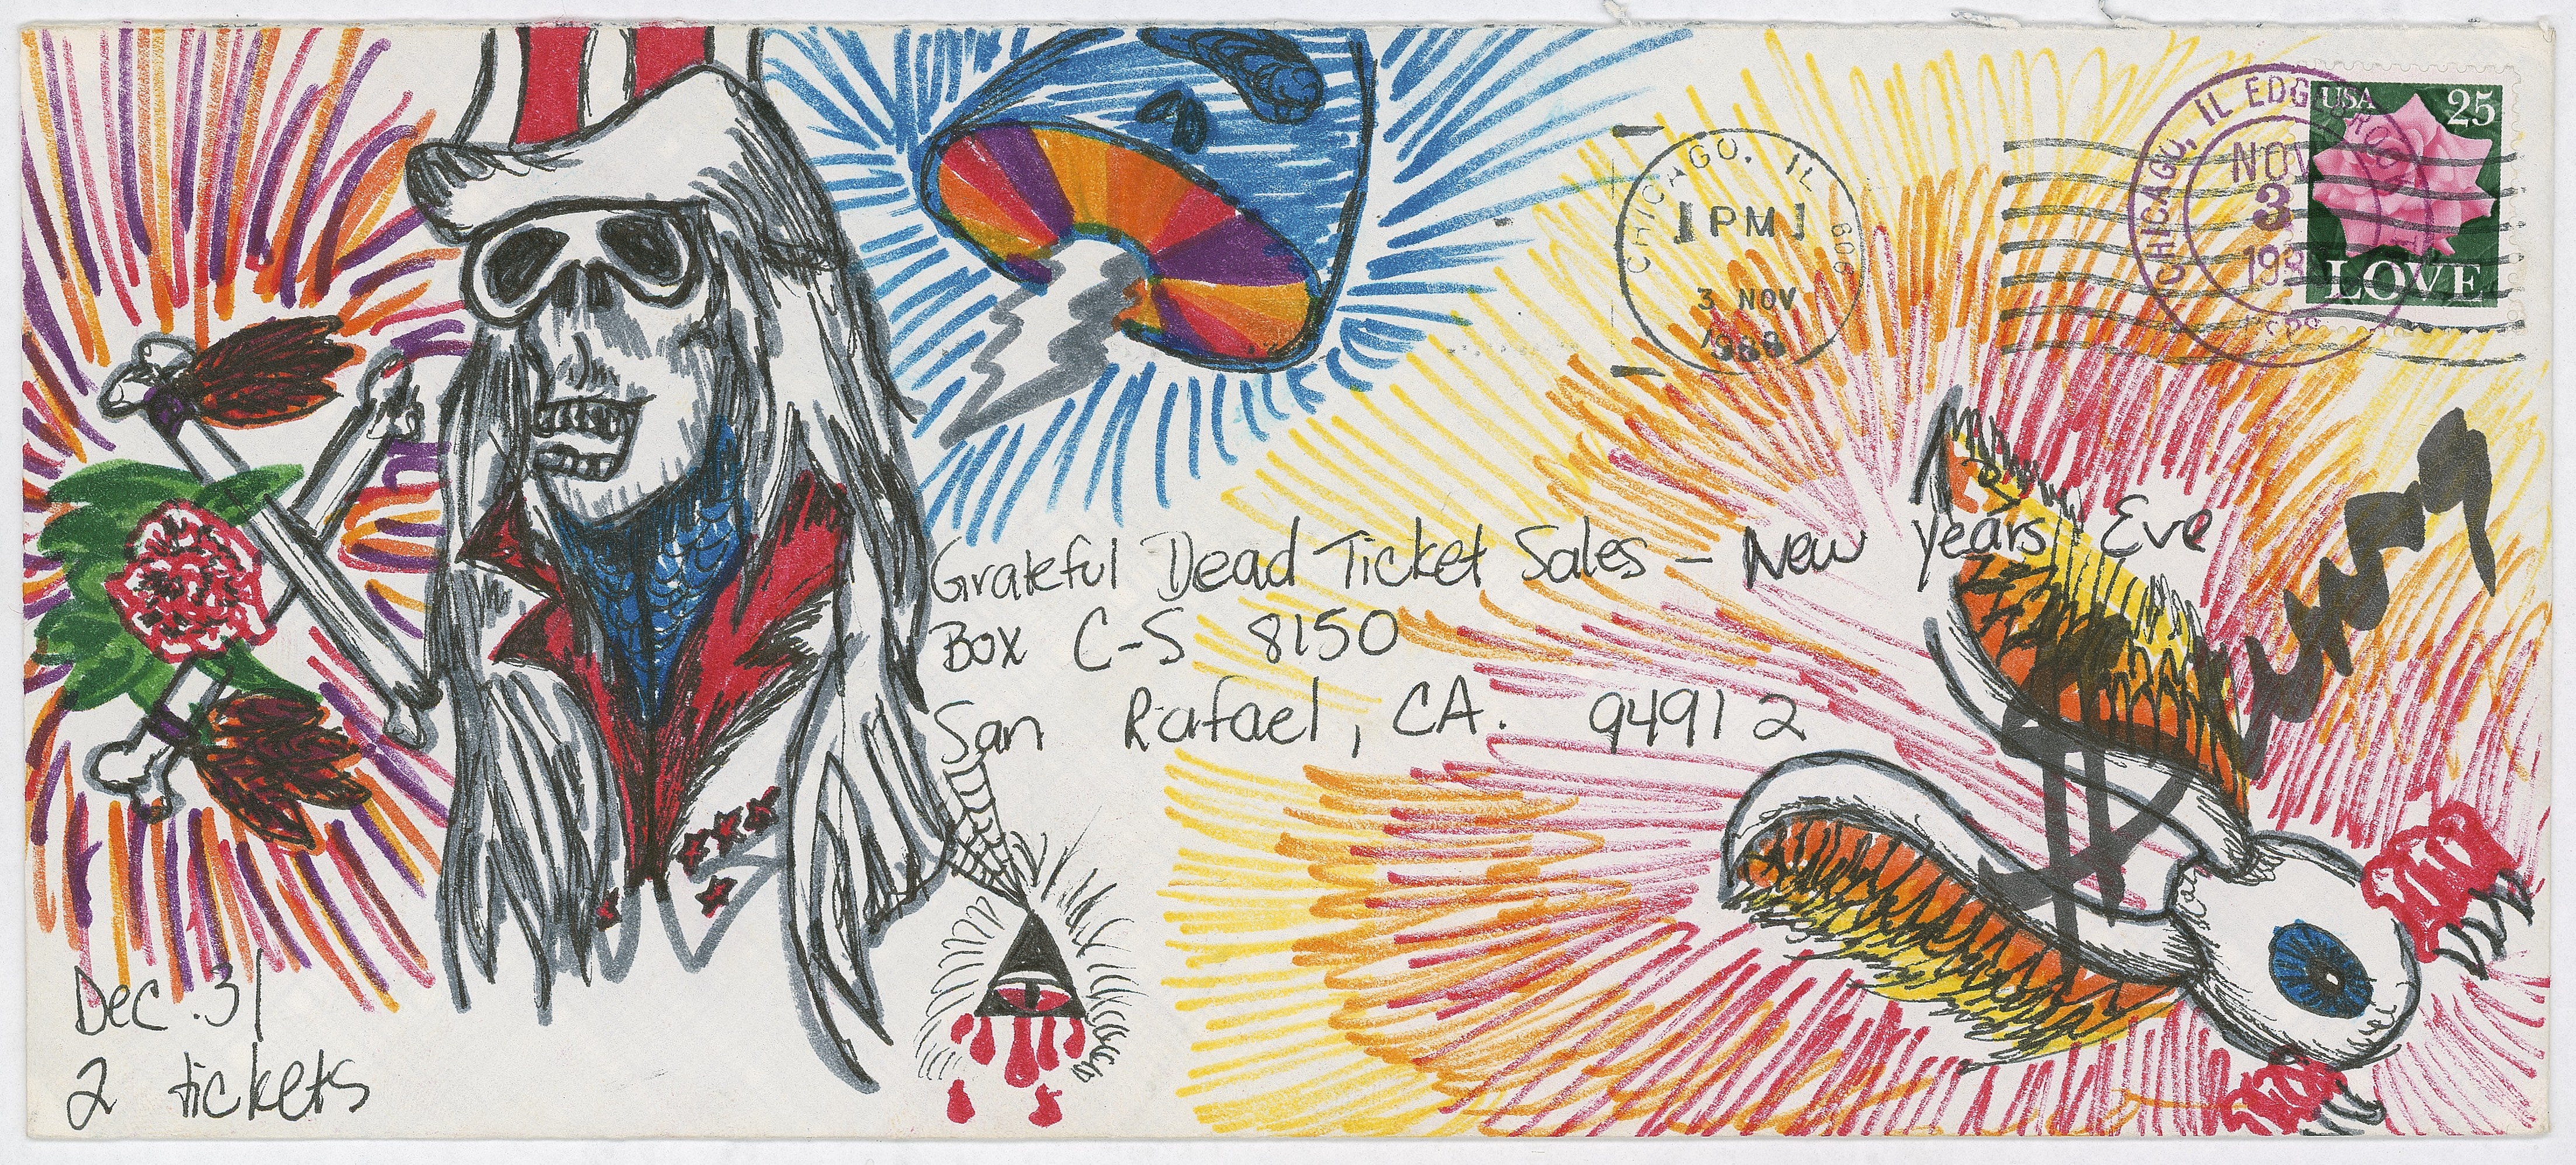 USA 25
LOVE
CHICAGO, IL EDG
NOV
3
198
USPS
CHICAGO, IL 606
PM
3 NOV
1988
Grateful Dead Ticket Sales - New Years Eve
Box C-S 8150
San Rafael, CA. 94912
Dec. 31
2 tickets